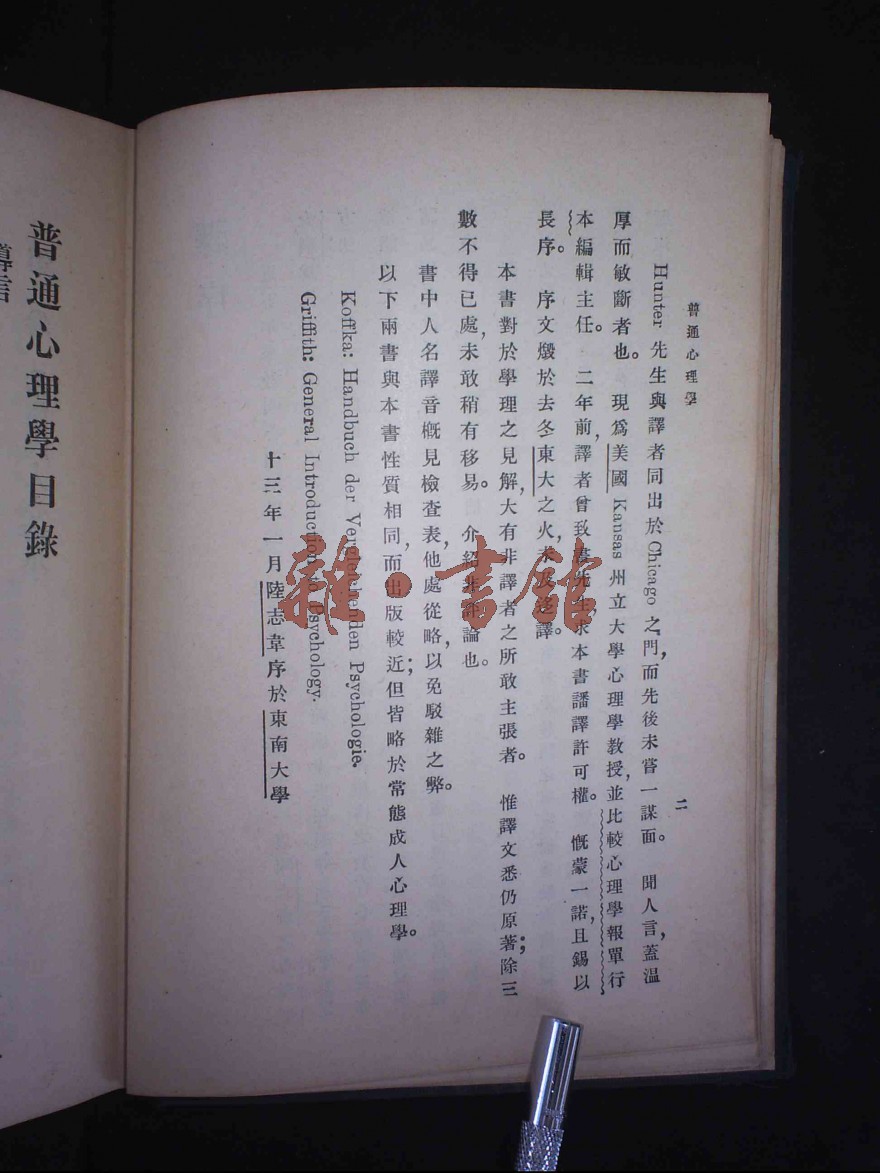 普通心理學
二
Hunter 先生與譯者同出於Chicago 之門,而先後未嘗一謀面。 聞人言,蓋溫
厚而敏斷者也。 現爲美國 Kansas 州立大學心理學教授,並比較心理學報單行
本編輯主任。 二年前,譯者曾致書先生求本書譒譯許可權。 慨蒙一諾,且錫以
長序。 序文燬於去冬東大之火,未及迻譯。
本書對於學理之見解,大有非譯者之所敢主張者。 惟譯文悉仍原著;除三
數不得已處,未敢稍有移易。 介紹非評論也。
書中人名譯音概見檢查表,他處從略,以免駁雜之弊。
以下兩書與本書性質相同,而出版較近;但皆略於常態成人心理學。
Koffka: Handbuch der Vergleichenden Psychologie.
Griffith: General Introduction to Psychology.
十三年一月陸志韋序於東南大學
普通心理學目錄
導言
雜·書館